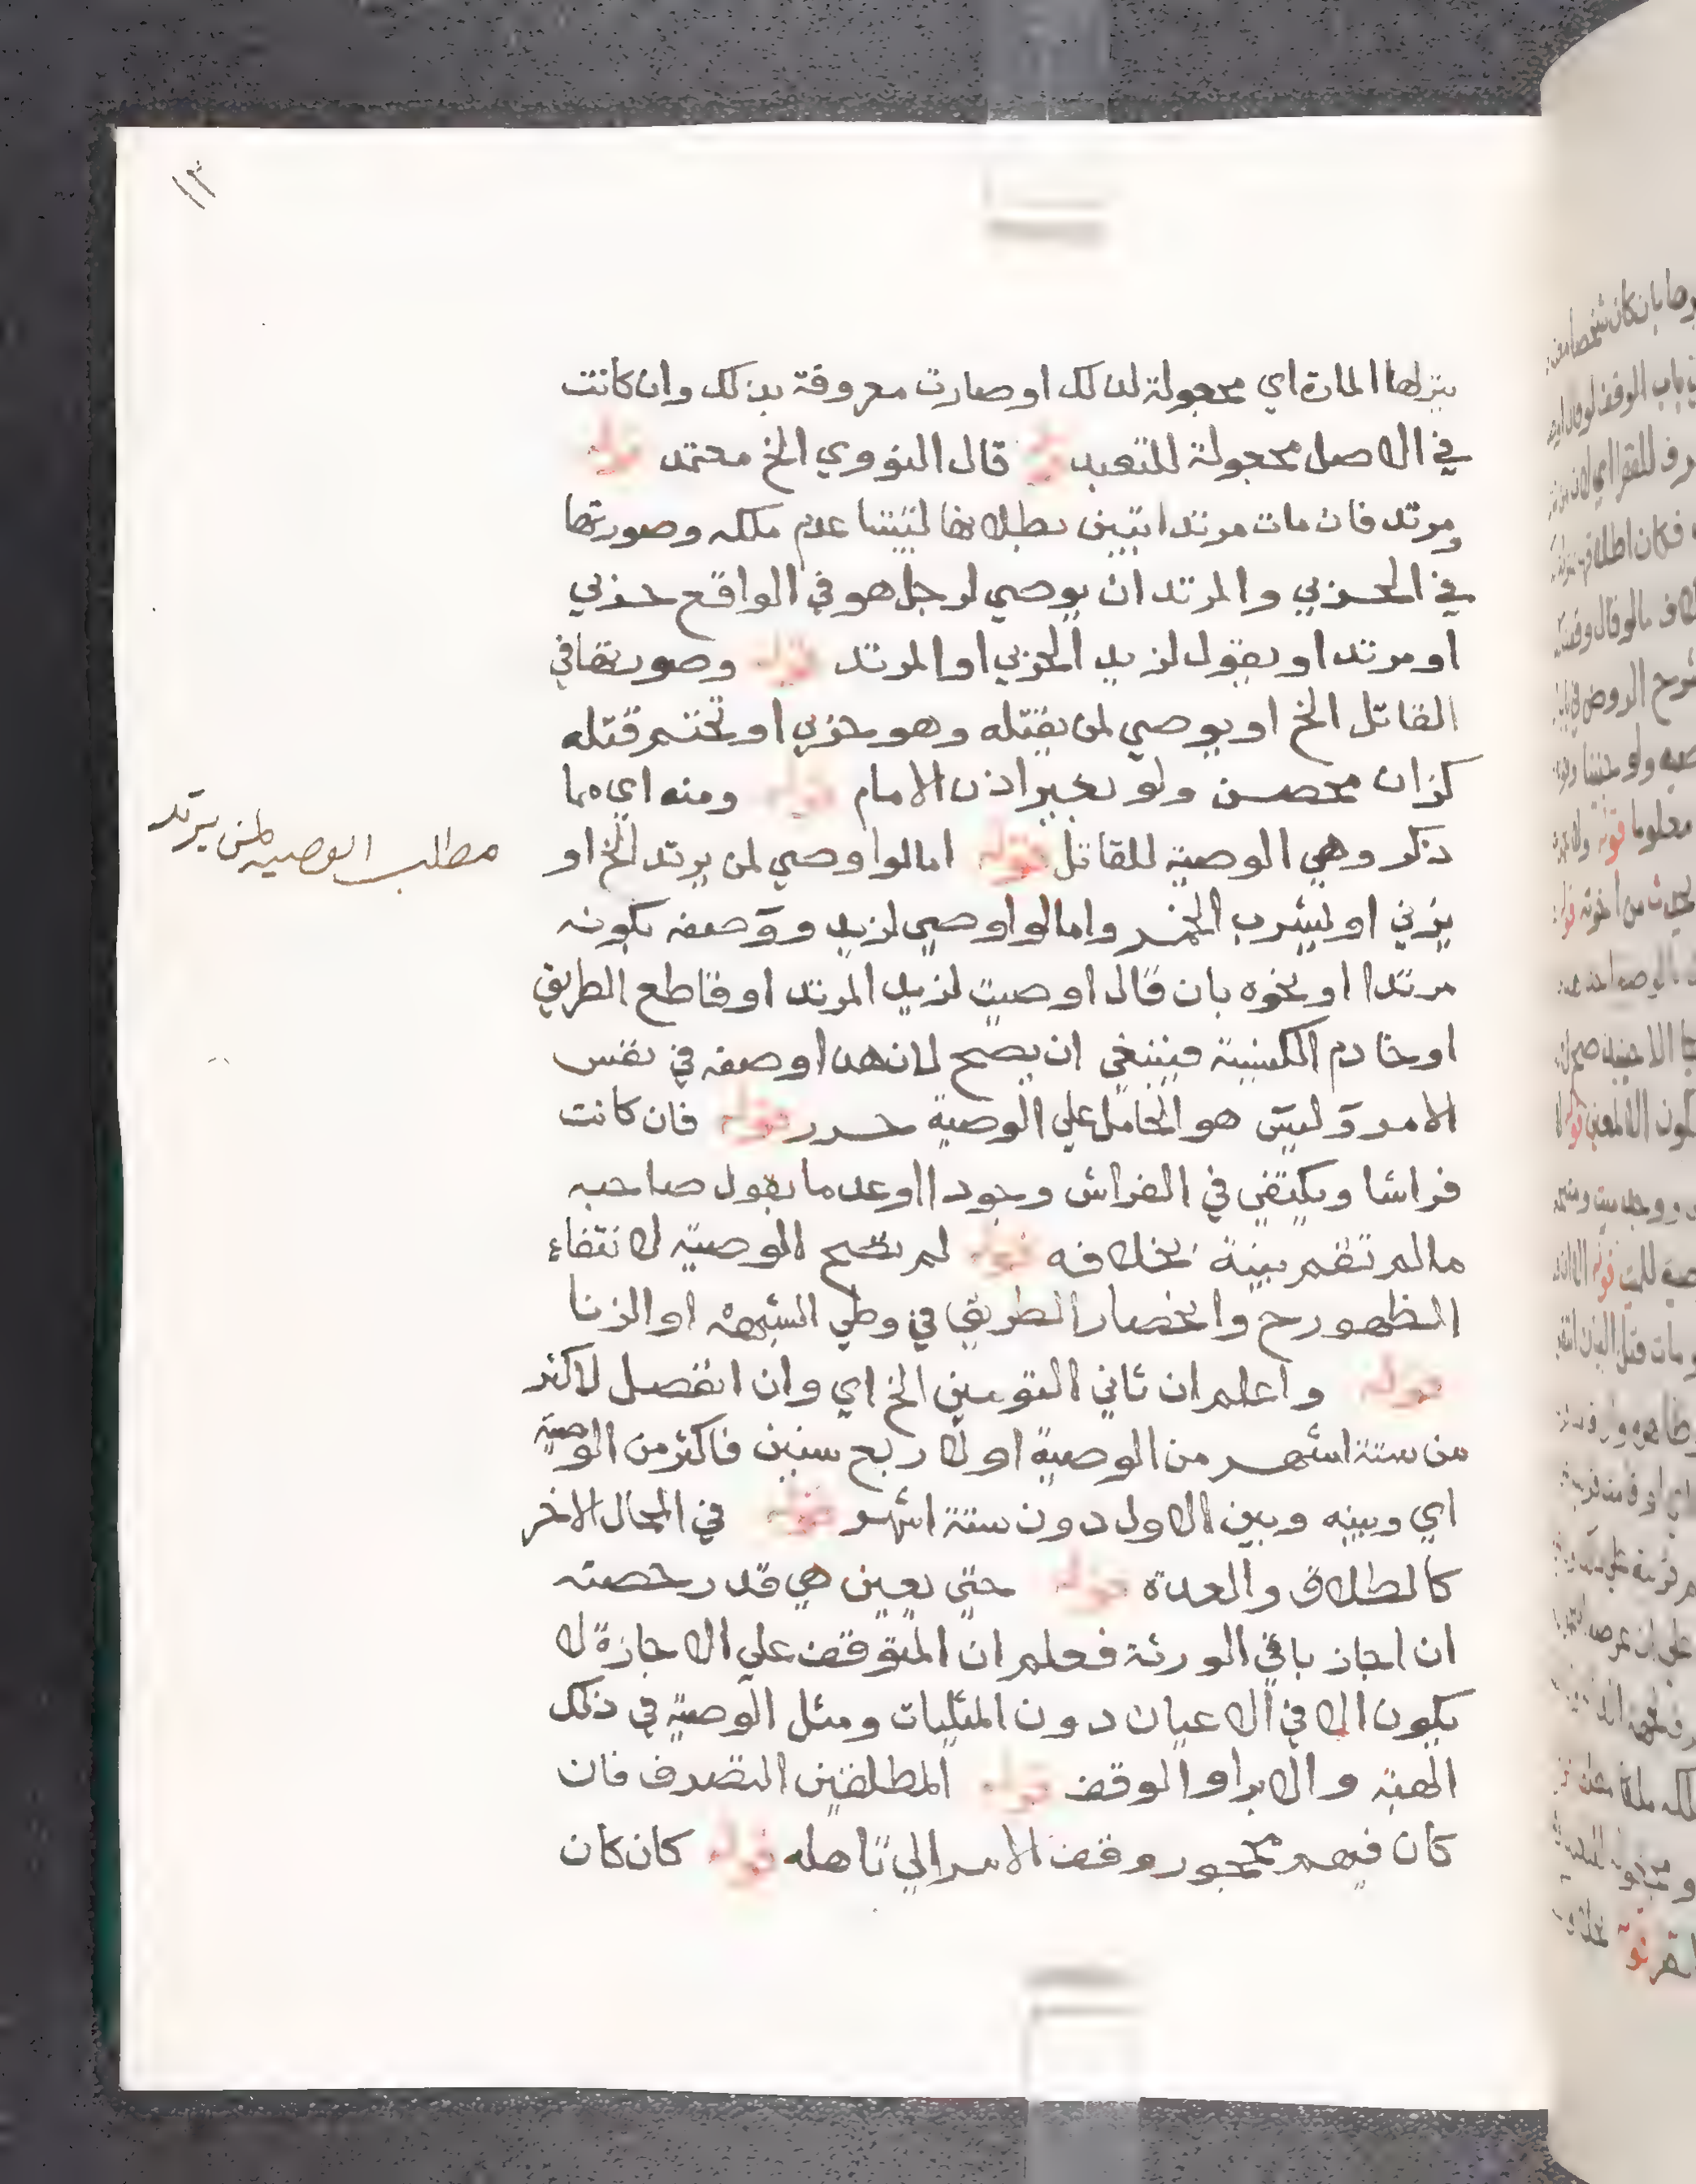 ١٣
ينزلها المارة اي مجعولة لذلك او صارت معروفة بذلك وان كانت
في الاصل مجعولة للتعبد قوله قال النووي الخ معتمد قوله
ومرتد فان مات مرتدا تبين بطلانها لتبيننا عدم ملكه وصورتها
في الحربي والمرتد ان يوصي لرجل هو في الواقع حربي
او مرتد او يقول لزيد الحربي او المرتد قوله وصورتها في
القاتل الخ او يوصي لمن يقتله وهو حربي او تحتم قتله
كزان محصن ولو بغير اذن الامام قوله ومنه اي مما
ذكر وهي الوصية للقاتل قوله اما لو اوصي لمن يرتد الخ او
يزني او ليشرب الخمر واما لو اوصي لزيد ووصفه بكونه
مرتدا او نحوه بان قال اوصيت لزيد المرتد او قاطع الطريق
او خادم الكنيسة فينبغي ان يصح لان هذا وصفه في نفس
الامر وليس هو الحامل علي الوصية حرر قوله فان كانت
فراشا ويكتفي في الفراش وجودا او عدما بقول صاحبه
ما لم تقم بينة بخلافه قوله لم تصح الوصية لانتفاء
الظهور ح وانحصار الطريق في وطي الشبهة او الزنا
قوله واعلم ان ثاني التومين الخ اي وان انفصل لاكثر
من ستة اشهر من الوصية او لاربع سنين فاكثر من الوصية
اي وبينه وبين الاول دون ستة اشهر قوله في المحال الاخر
كالطلاق والعدة قوله حتي بعين هي قدر حصته
ان اجاز باقي الورثة فعلم ان المتوقف علي الاجازة لا
يكون الا في الاعيان دون المثليات ومثل الوصية في ذلك
الهبة والابرا والوقف قوله المطلقين التصرف فان
كان فيهم محجور وقف الامر الي تاهله قوله كان كان
مطلب الوصيه لمن يرتد